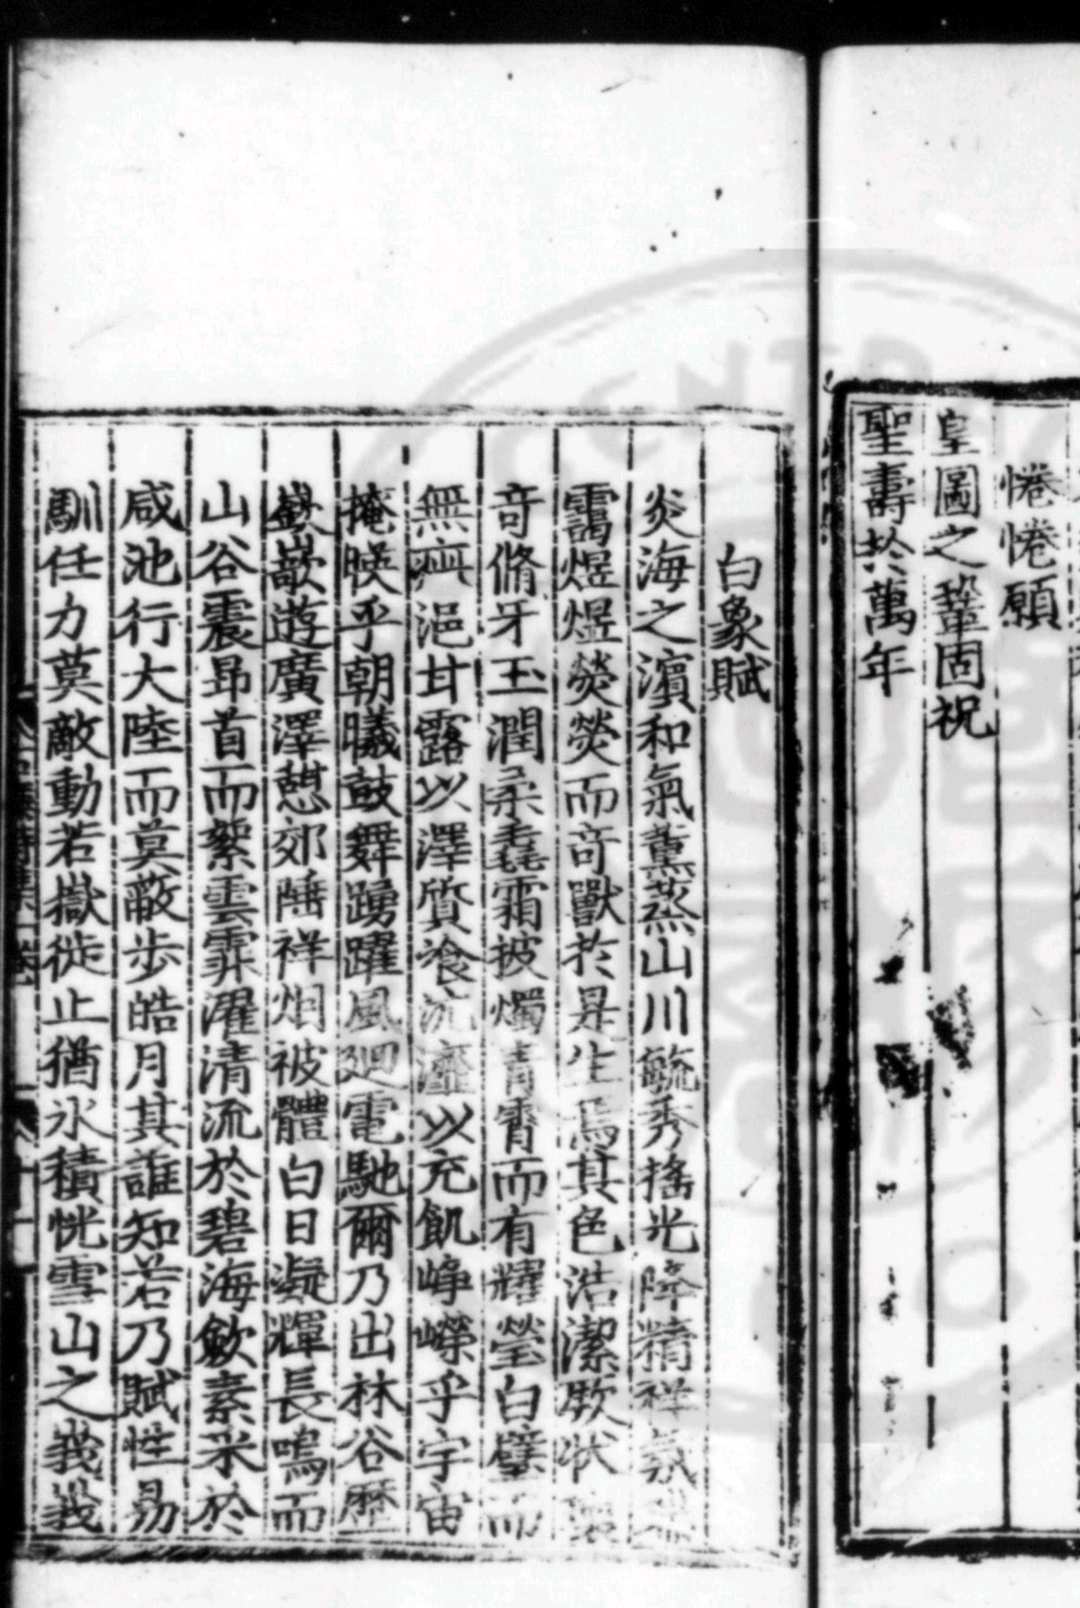 惓惓願
皇圖之鞏固祝
聖壽於萬年
白象賦
炎海之濱和氣薰蒸山川毓秀搖光降精祥氛
靄煜煜熒熒而竒獸於是生焉其色浩潔厥状
竒脩牙玉潤柔毳霜披燭青霄而有耀瑩白璧而
無疵浥甘露以澤質飡沆瀣以充飢崢嶸乎宇宙
掩映乎朝曦鼓舞踴躍風廻電馳爾乃出林谷歷
嶔嶔遊廣澤憇郊陲祥烟被體白日凝輝長鳴而
山谷震昻首而繁雲霏濯清流於碧海歛素采於
咸池行大陸而莫蔽步皓月其誰知若乃賦性易
馴任力莫敵動若嶽徙止猶氷積恍雪山之峩峩